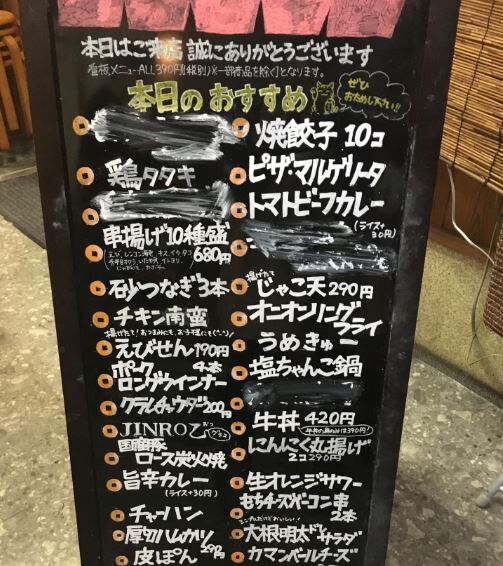 本日はご来店 誠にありがとうございます
看板メニューALL390円(税別)※一部商品を除く)となります。
本日のおすすめ
ぜひ
おためし下さい!!
鶏タタキ
串揚げ10種盛
680円
砂つなぎ3本
チキン南蛮
揚げたて!おつまみにも、お子様にも(^-^)!
えびせん190円
ポーク 4本
ロングウインナー
クラムチャウダー200円
JINRO乙
グラス
国産豚
ロース炭火焼
旨辛カレー
(ライス+30円)
チャーハン
厚切ハムカツ
290円
皮ぽん
焼餃子 10コ
ピザ・マルゲリータ
トマトビーフカレー
(ライス+
30円)
揚げたて
じゃこ天290円
オニオンリング
フライ
うめきゅー
塩ちゃんこ鍋
牛丼 420円
牛丼の具のみは390円!
にんにく丸揚げ
2コ290円
生オレンジサワー
もちチーズベーコン串
2本
大根明太ドレサラダ
カマンベールチーズ